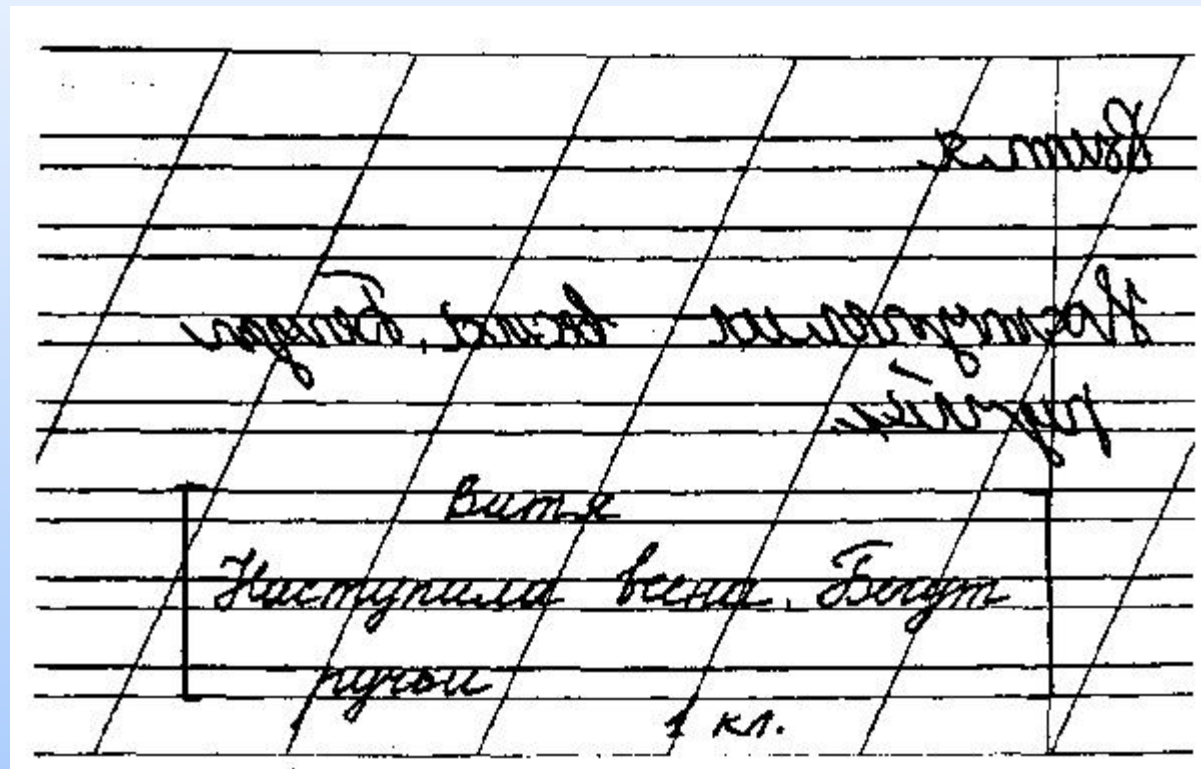 Витя
Наступила весна. Бегут
ручьи
Витя
Наступила весна. Бегут
ручьи
1 кл.